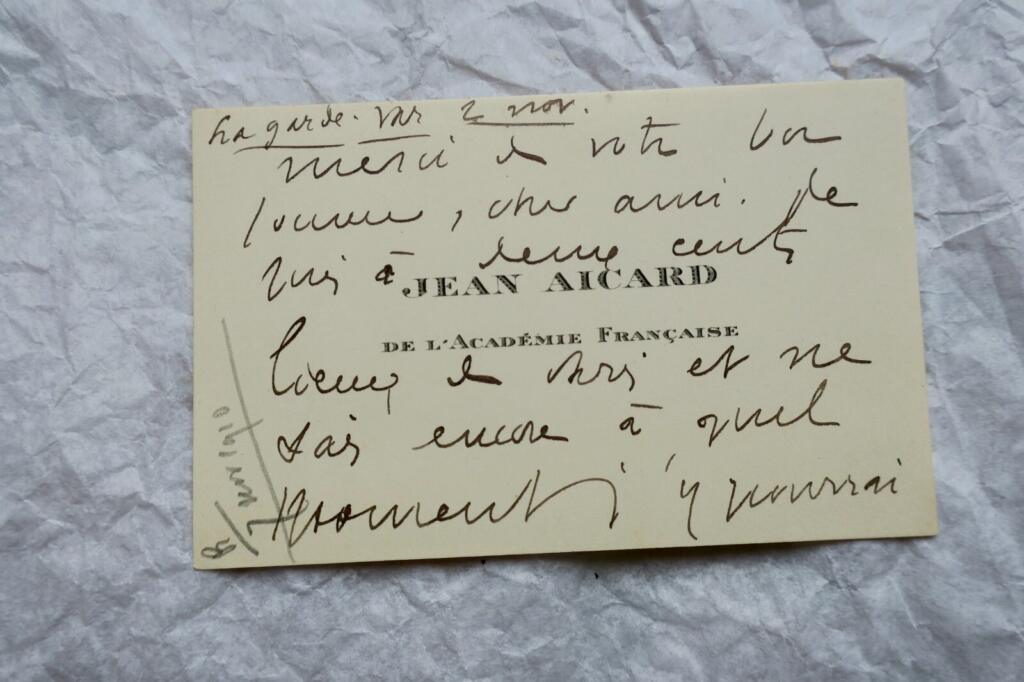 La garde. Var 2 nov.
merci de votre bon
souvenir, cher ami. Je
suis à deux cents
JEAN AICARD
DE L'ACADÉMIE FRANÇAISE
lieues de Paris et ne
sais encore à quel
moment j'y pourrai
nov 1910